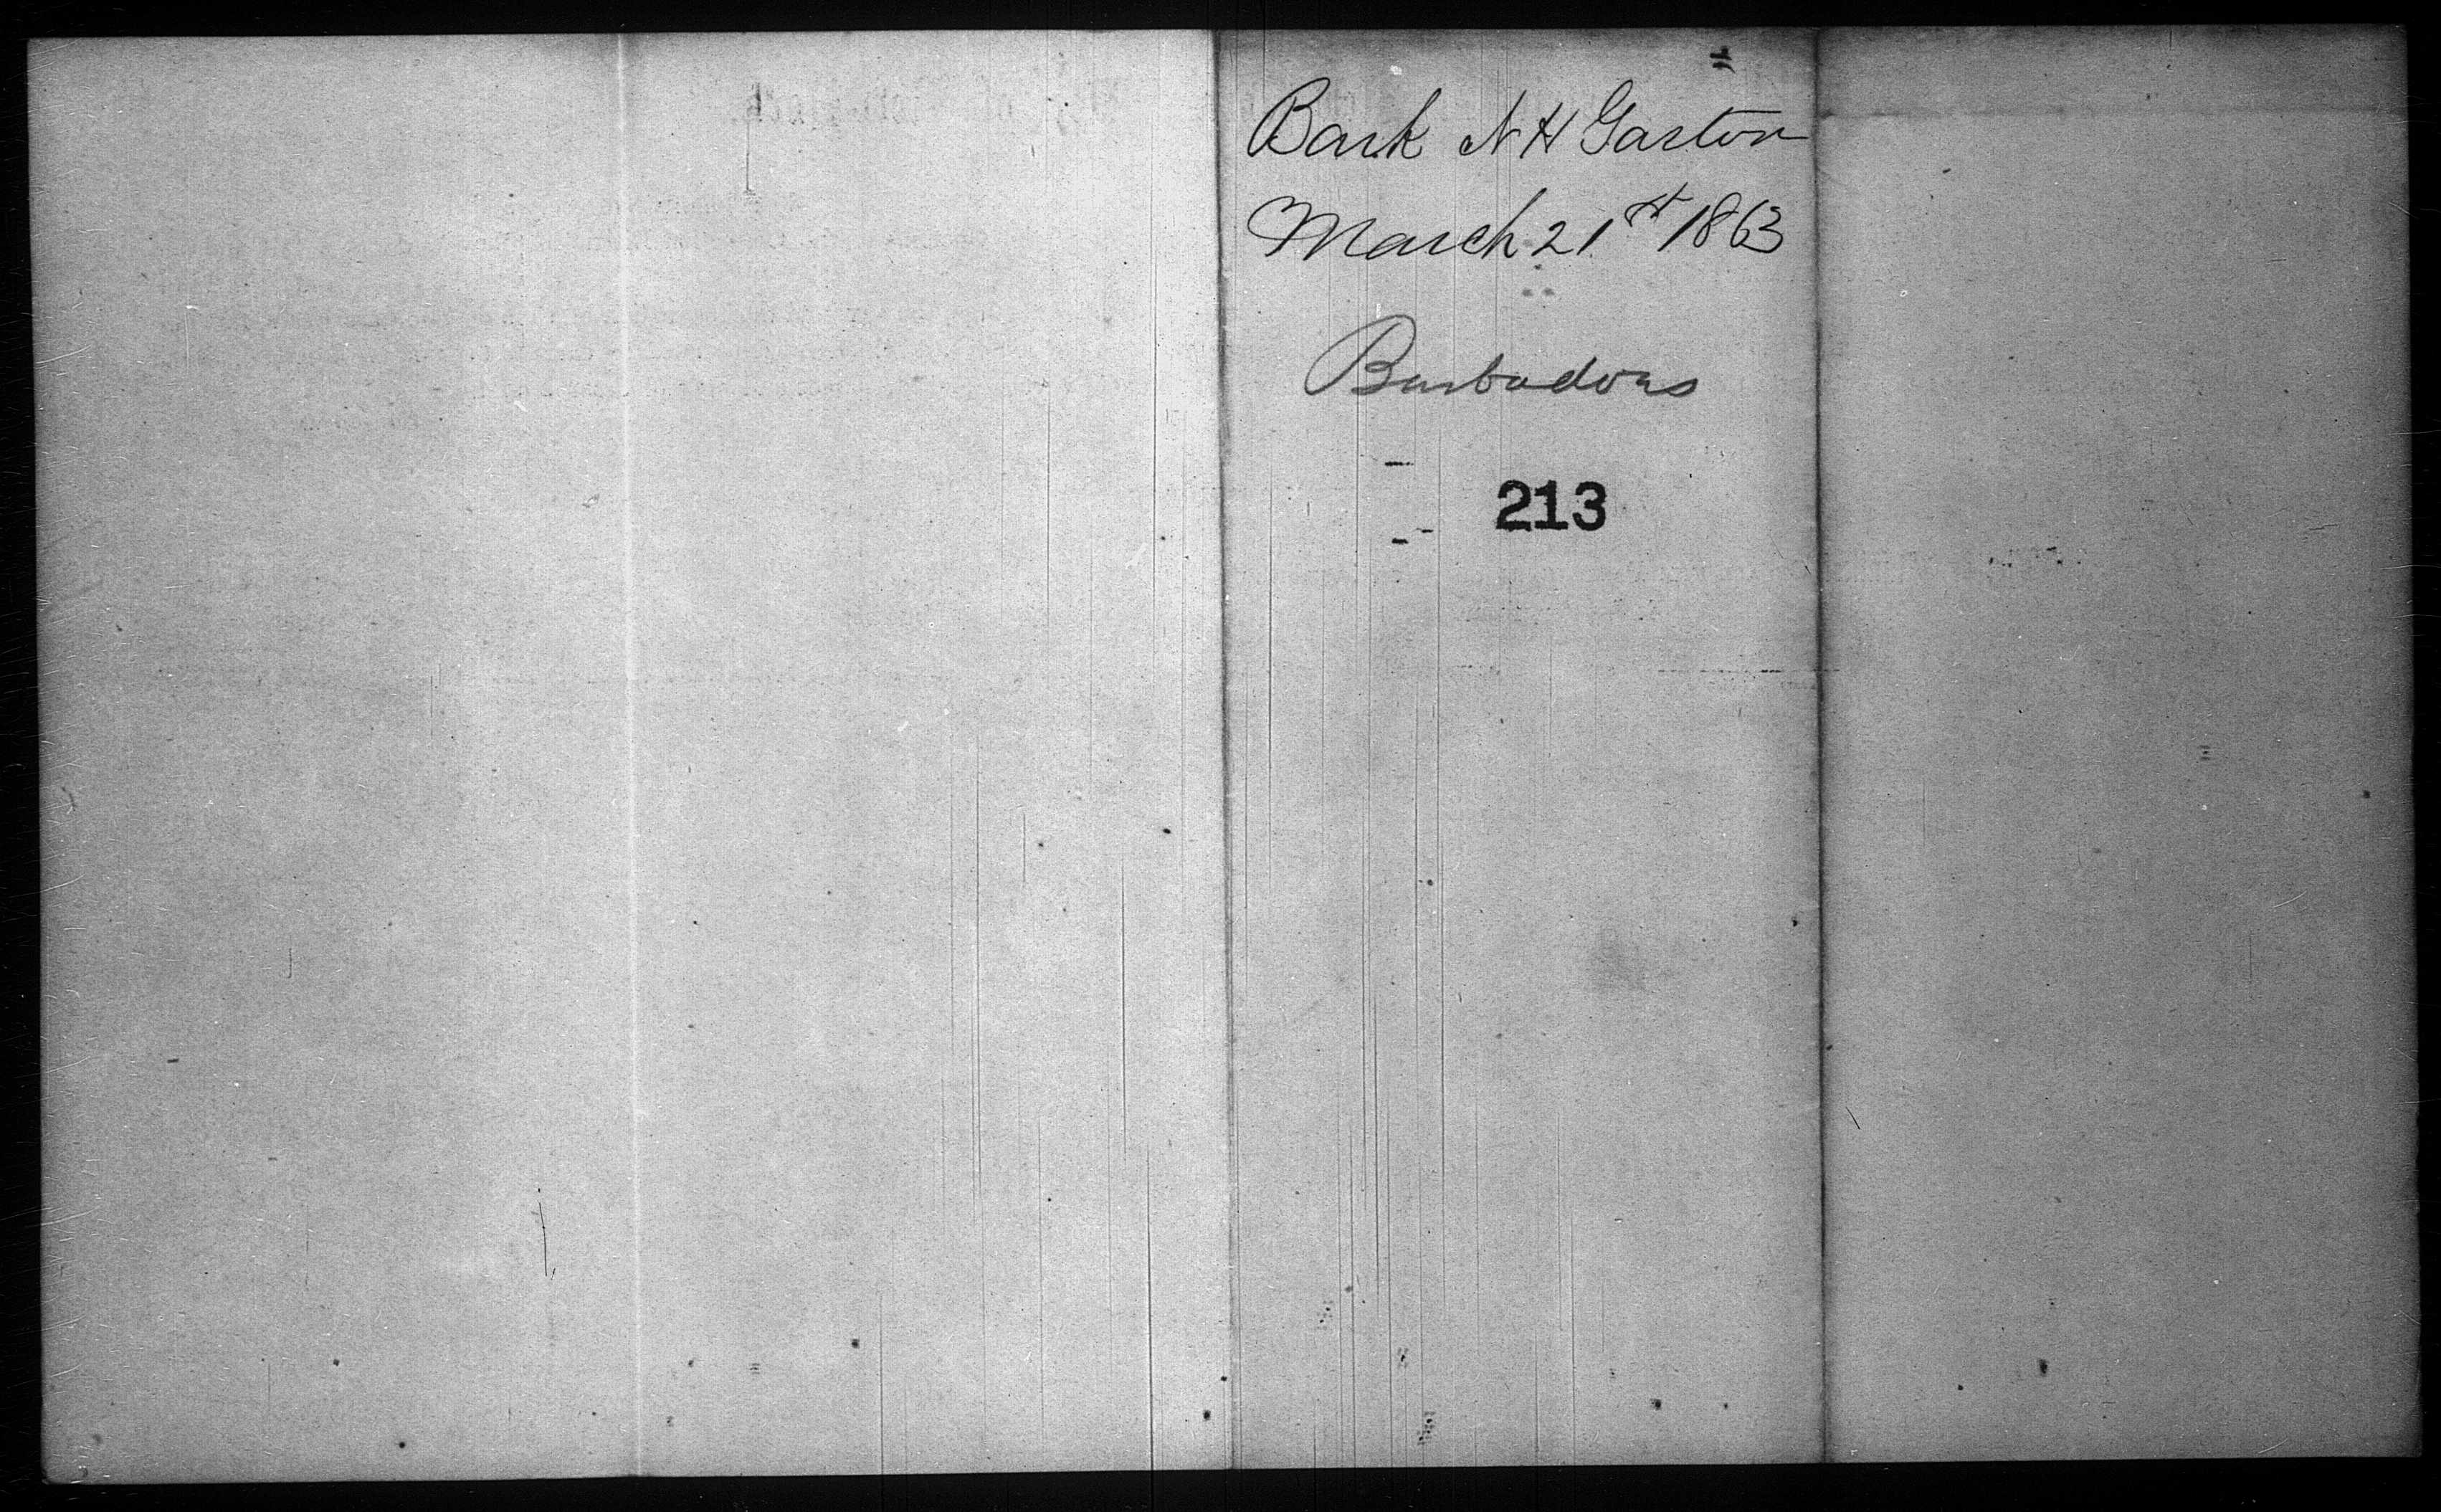 Bark N H Gaston
March 21st 1863
Barbadoes
213